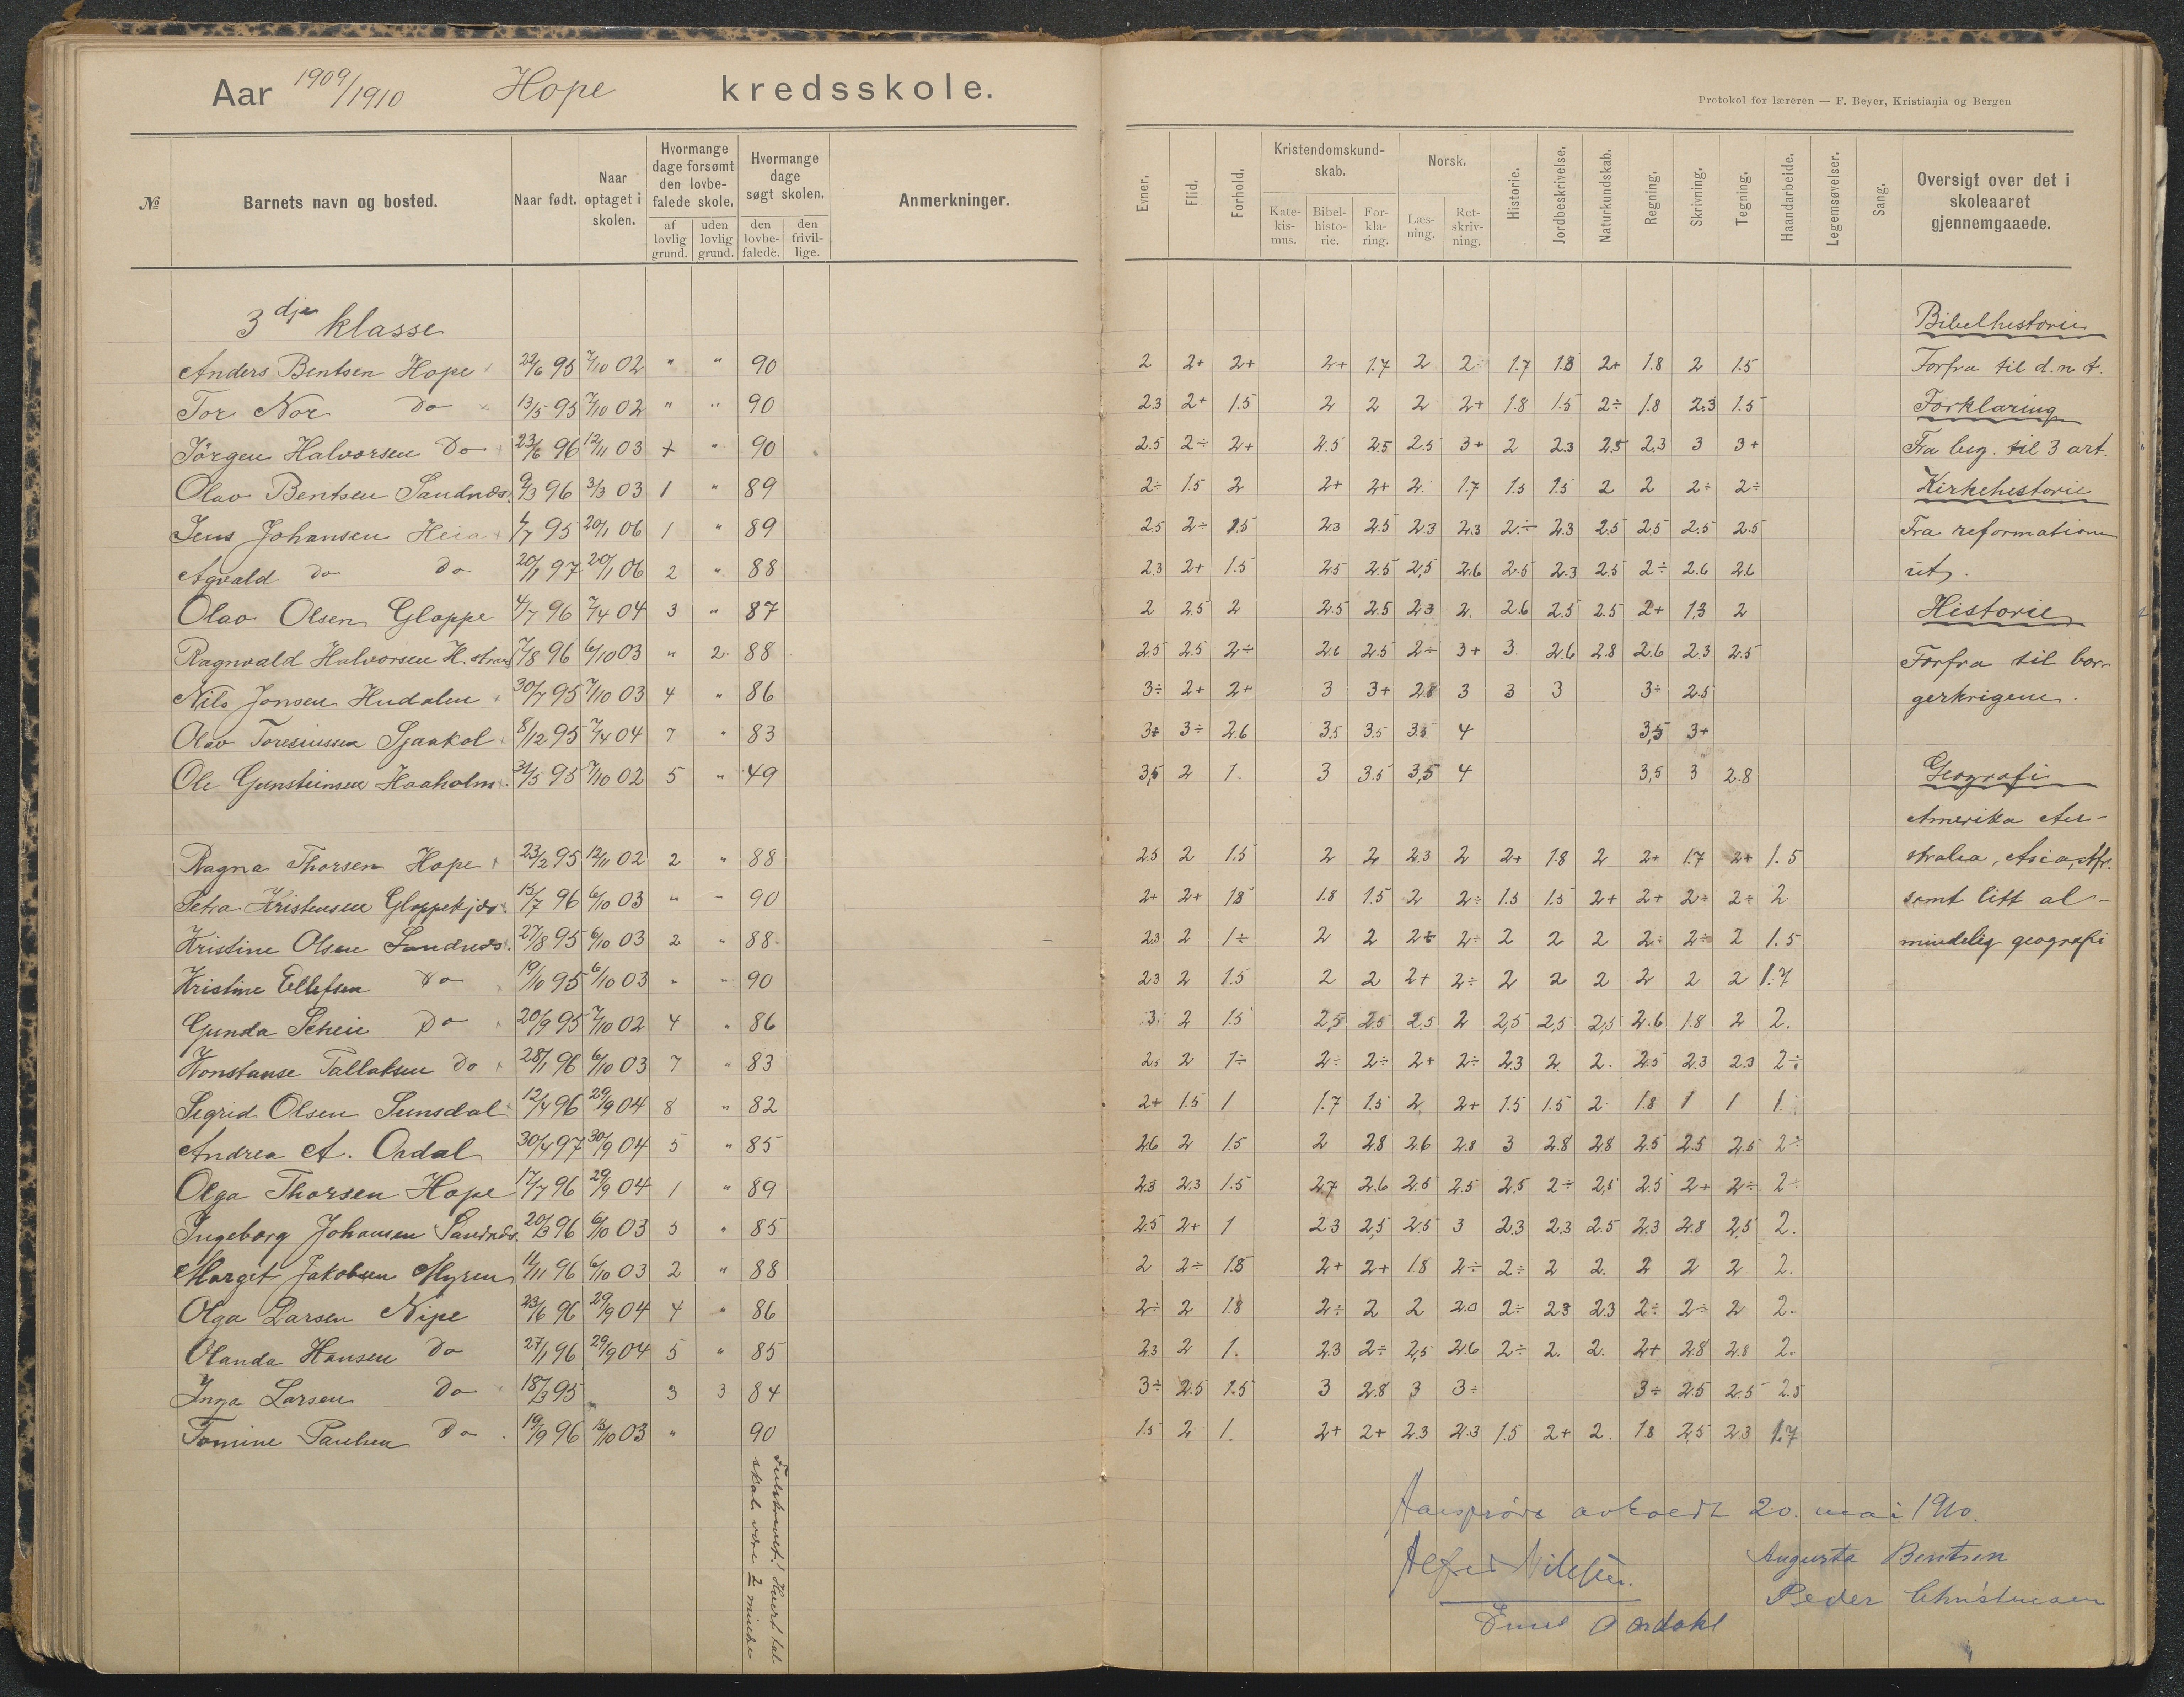 Aar 1909/1910 Hope kredsskole.
Protokol for læreren — F. Beyer, Kristiania og Bergen
№ Barnets navn og bosted. Naar født. Naar optaget i skolen. Hvormange dage forsømt den lovbefalede skole. af lovlig grund. uden lovlig grund. Hvormange dage søgt skolen. den lovbefalede. den frivillige. Anmerkninger.
Evner. Flid. Forhold. Kristendomskundskab. Katekismus. Bibelhistorie. Forklaring. Norsk. Læsning. Retskrivning. Historie. Jordbeskrivelse. Naturkundskab. Regning. Skrivning. Tegning. Haandarbeide. Legemsøvelser. Sang. Oversigt over det i skoleaaret gjennemgaaede.
3dje klasse
Anders Bentsen Hope 22/6 95 7/10 02 " " 90 2 2+ 2+ 2+ 1.7 2 2÷ 1.7 1.8 2+ 1.8 2 1.5
Tor Nor Do 13/5 95 7/10 02 " " 90 2.3 2+ 1.5 2 2 2 2+ 1.8 1.5 2÷ 1.8 2.3 1.5
Jörgen Halvorsen Do 23/6 96 12/11 03 + " 90 2.5 2÷ 2+ 2.5 2.5 2.5 3+ 2 2.3 2.5 2.3 3 3+
Olav Bentsen Sandnæs 9/3 96 3/3 03 1 " 89 2÷ 1.5 2 2+ 2+ 2. 1.7 1.5 1.5 2 2 2÷ 2÷
Jens Johansen Heia 1/7 95 20/1 06 1 " 89 2.5 2÷ 1.5 2.3 2.5 2.3 2.3 2÷ 2.3 2.5 2.5 2.5 2.5
Agvald Do Do 20/1 97 20/1 06 2 " 88 2.3 2+ 1.5 2.5 2.5 2,5 2.6 2.5 2.3 2.5 2÷ 2.6 2.6
Olav Olsen Gloppe 4/7 96 7/4 04 3 " 87 2 2.5 2 2.5 2.5 2.3 2. 2.6 2.5 2.5 2+ 1,3 2
Ragnvald Halvorsen H. strand 7/8 96 6/10 03 " 2 88 2.5 2.5 2÷ 2.6 2.5 2÷ 3+ 3. 2.6 2.8 2.6 2.3 2.5
Nils Jonsen Hudalen 30/7 95 7/10 03 4 " 86 3÷ 2+ 2+ 3 3+ 2.8 3 3 3 3÷ 2.5
Olav Toresiussen Sjaakol 8/12 95 7/4 04 7 " 83 3+ 3÷ 2.6 3.5 3.5 3.5 4 3,5 3+
Ole Gunsteinsen Haaholm 31/5 95 7/10 02 5 " 49 3,5 2 1. 3 3.5 3,5 4 3,5 3 2.8
Ragna Thorsen Hope 23/2 95 12/11 02 2 " 88 2.5 2 1.5 2 2 2.3 2 2+ 1.8 2 2+ 1.7 2+ 1.5
Petra Kristensen Gloppekjær 15/7 96 6/10 03 " " 90 2+ 2+ 1.8 1.8 1.5 2 2÷ 1.5 1.5 2+ 2+ 2÷ 2÷ 2
Kristine Olsen Sandnæs 27/8 95 6/10 03 2 " 88 2.3 2 1÷ 2 2 2+ 2÷ 2 2 2 2÷ 2÷ 2 1.5
Kristine Ellefsen Do 19/10 95 6/10 03 " " 90 2.3 2 1.5 2 2 2+ 2÷ 2 2 2 2 2 2 1.7
Gunda Scheie Do 20/9 95 7/10 02 4 " 86 3. 2 1.5 2,5 2.5 2.5 2 2,5 2,5 2,5 2.6 1.8 2 2.
Konstanse Tallaksen Do 28/1 96 6/10 03 7 " 83 2.5 2 1÷ 2÷ 2÷ 2+ 2÷ 2.3 2. 2. 2.5 2.3 2.3 2÷
Sigrid Olsen Sunsdal 12/4 96 29/9 04 8 " 82 2+ 1.5 1 1.7 1.5 2 2+ 1.5 1.5 2 1.8 1 1 1.
Andrea A. Ordal 30/4 97 30/9 04 5 " 85 2.6 2 1.5 2 2.8 2.6 2.8 3 2.8 2.8 2.5 2.5 2.5 2÷
Olga Thorsen Hope 17/7 96 29/9 04 1 " 89 2.3 2.3 1.5 2.7 2.6 2.5 2.5 2.5 2÷ 2,5 2.5 2+ 2÷ 2÷
Ingeborg Johansen Sandnæs 20/3 96 6/10 03 5 " 85 2.5 2+ 1 2.3 2,5 2.5 3 2.3 2.3 2.5 2.3 2.8 2,5 2.
Marget Jakobsen Myren 11/11 96 6/10 03 2 " 88 2 2÷ 1.8 2+ 2+ 1.8 2÷ 2÷ 2 2. 2 2 2 2.
Olga Larsen Nipe 23/6 96 29/9 04 4 " 86 2÷ 2 1.8 2÷ 2 2 2.3 2÷ 2.3 2.3 2÷ 2÷ 2 2.
Olanda Hansen Do 27/1 96 29/9 04 5 " 85 2.3 2 1. 2.3 2÷ 2,5 2.6 2÷ 2. 2. 2+ 2.8 2.8 2.
Inga Larsen Do 18/3 95 " 3 3 84 3÷ 2.5 1.5 3 2.8 3 3÷ 3÷ 2.5 2.5 2.5
Tomine Paulsen Do 19/9 96 15/10 03 " 90 1.5 2 1. 2+ 2+ 2.3 2.3 1.5 2+ 2. 1.8 2,5 2.3 1.7
Feilskrevet! Hvert tal
skal være 2 mindre
Bibelhistorie
Forfra til d. n. t.
Forklaring
Fra beg. til 3 art.
Kirkehistorie
Fra reformationen
ut.
Historie
Forfra til bor-
gerkrigene.
Geografi
Amerika Au-
stralia, Asia, Afr.
samt litt al-
mindelig geografi
Aarsprøve avholdt 20. mai 1910.
Alfred Nilsen. Augusta Bentsen
Peder Christensen
Emil Aardahl